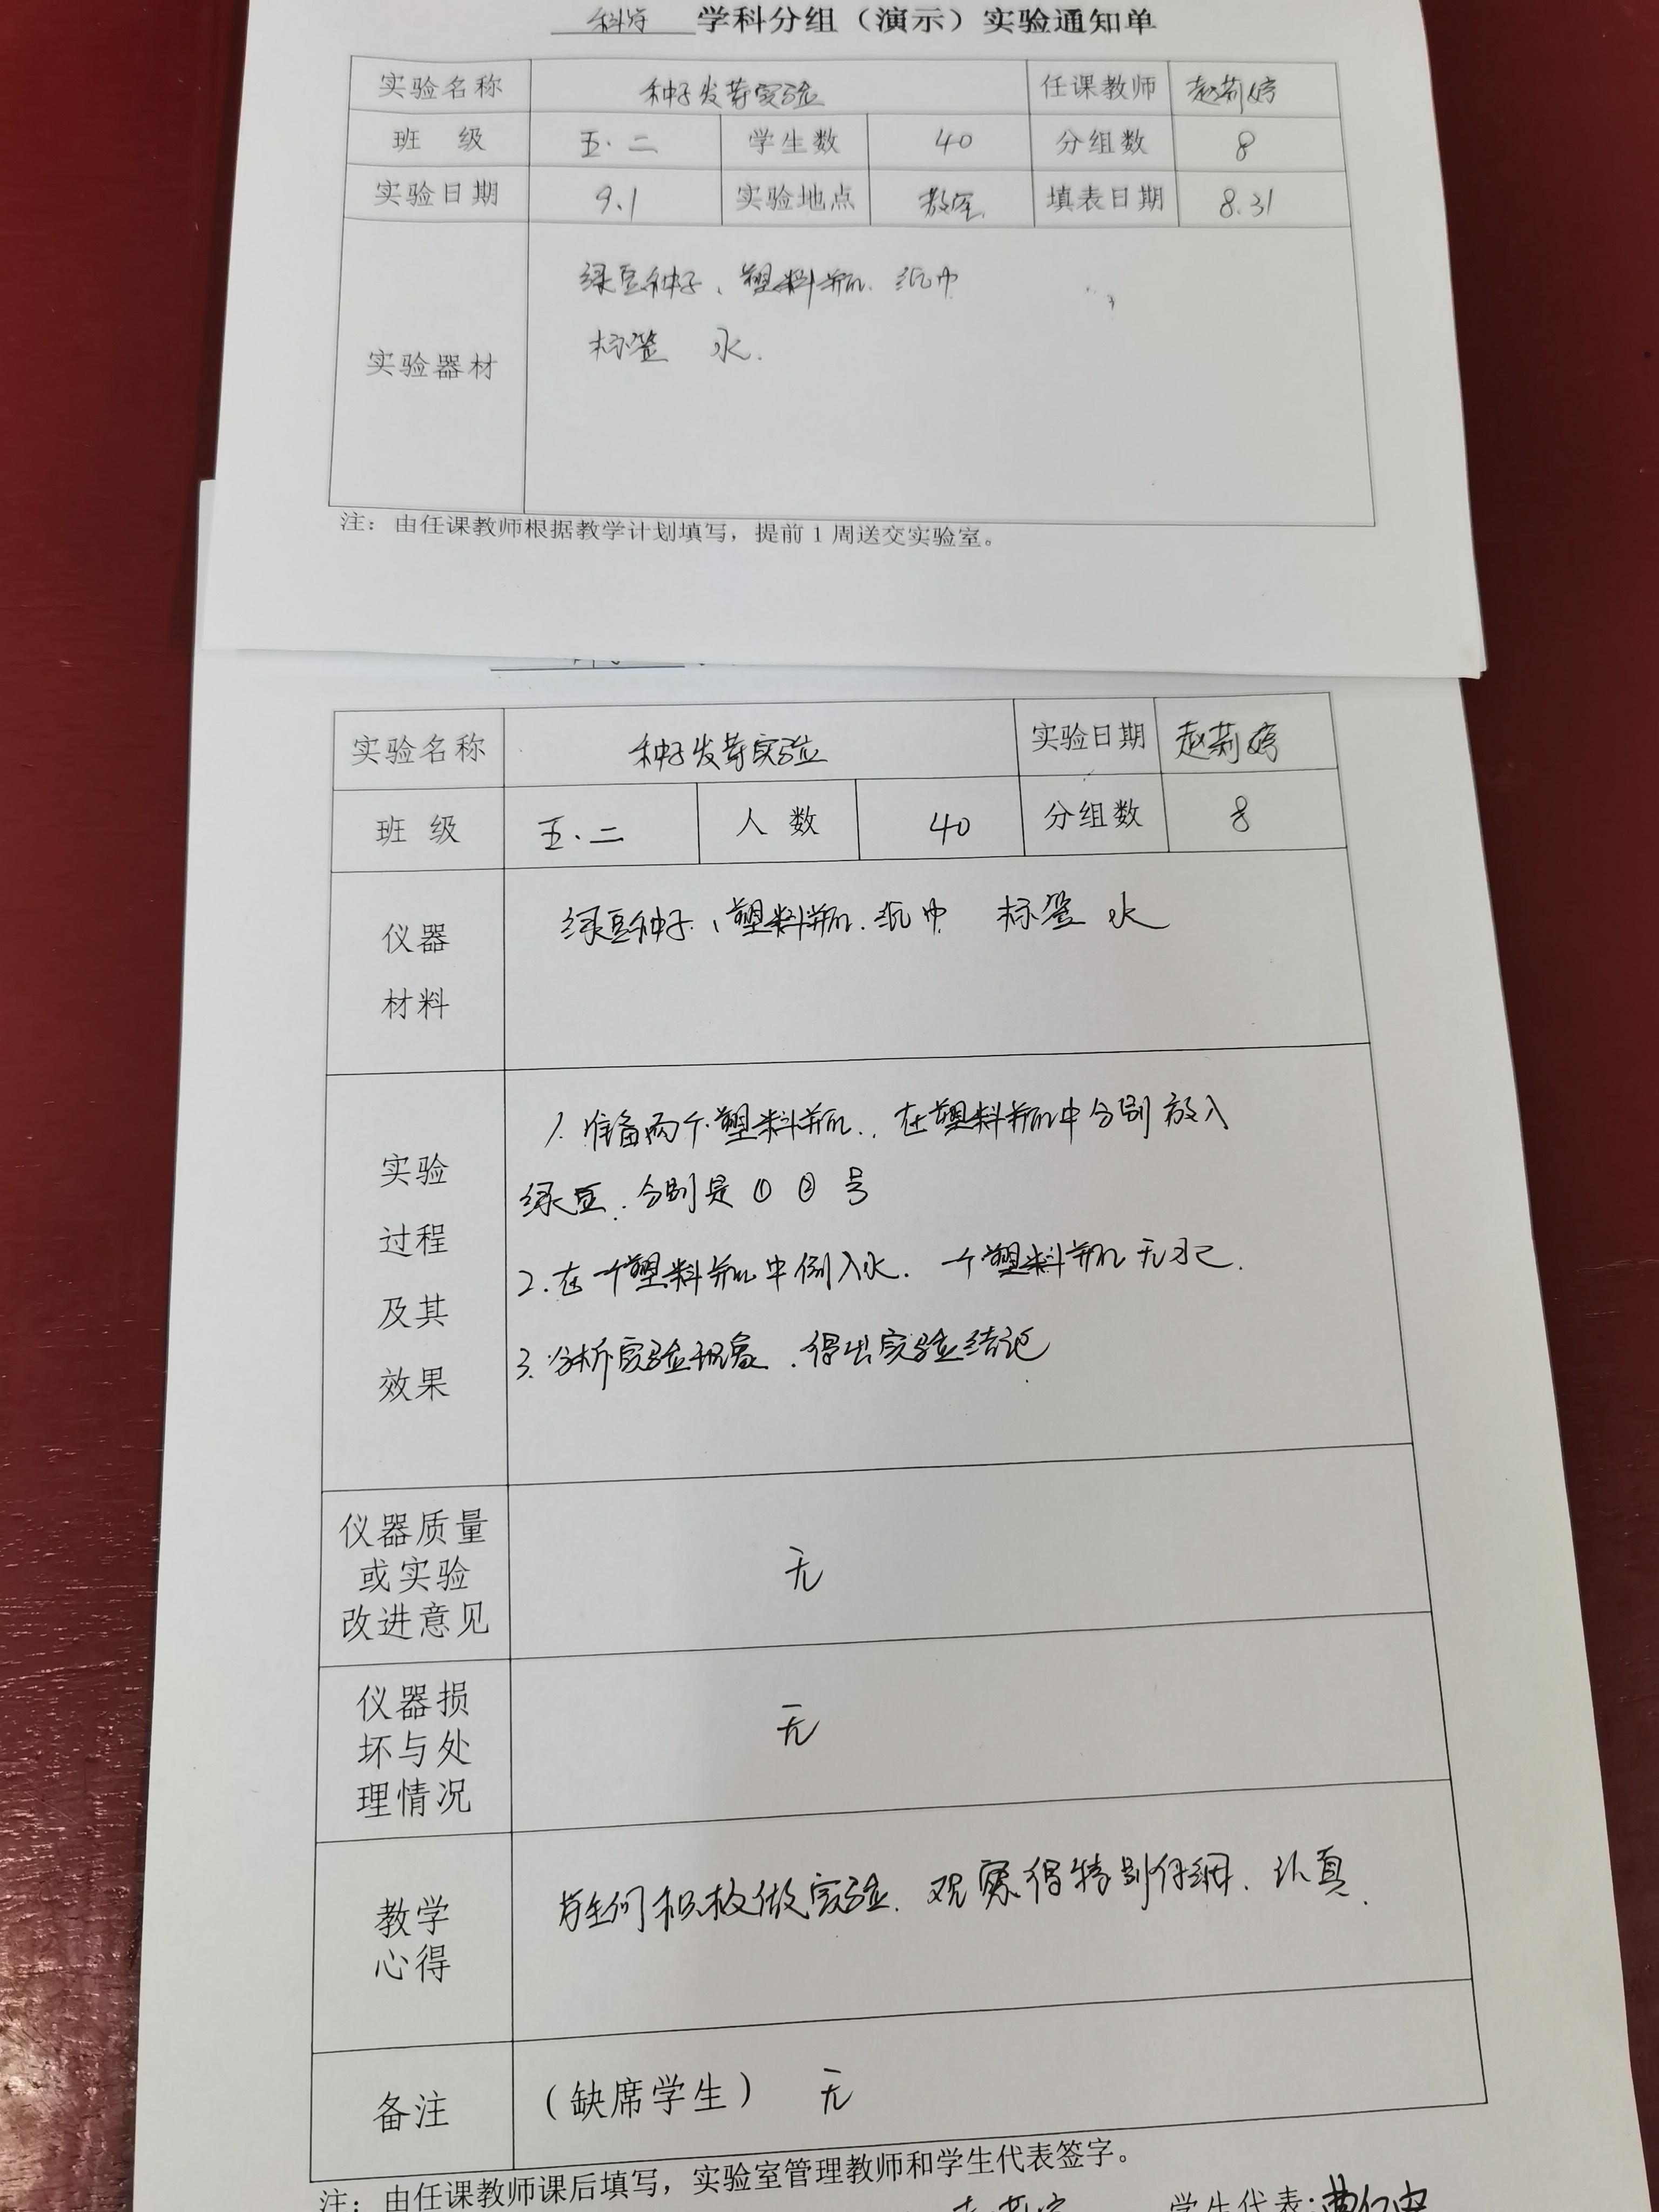 科学 学科分组（演示）实验通知单
实验名称 种子发芽实验 任课教师 赵莉婷
班 级 五·二 学生数 40 分组数 8
实验日期 9.1 实验地点 教室 填表日期 8.31
绿豆种子、塑料瓶.纸巾
标签 水.
实验器材
注：由任课教师根据教学计划填写，提前1周送交实验室。
实验名称 种子发芽实验 实验日期 赵莉婷
班 级 五.二 人 数 40 分组数 8
绿豆种子、塑料瓶.纸巾 标签 水
仪器
材料
1.准备两个塑料瓶.，在塑料瓶中分别放入
绿豆.分别是①②号
2.在一个塑料瓶中倒入水.一个塑料瓶无水.
3.分析实验现象.得出实验结论
实验
过程
及其
效果
仪器质量
或实验
改进意见
无
仪器损
坏与处
理情况
无
学生们积极做实验.观察得特别仔细、认真.
教学
心得
备注 （缺席学生） 无
注：由任课教师课后填写，实验室管理教师和学生代表签字。
学生代表：